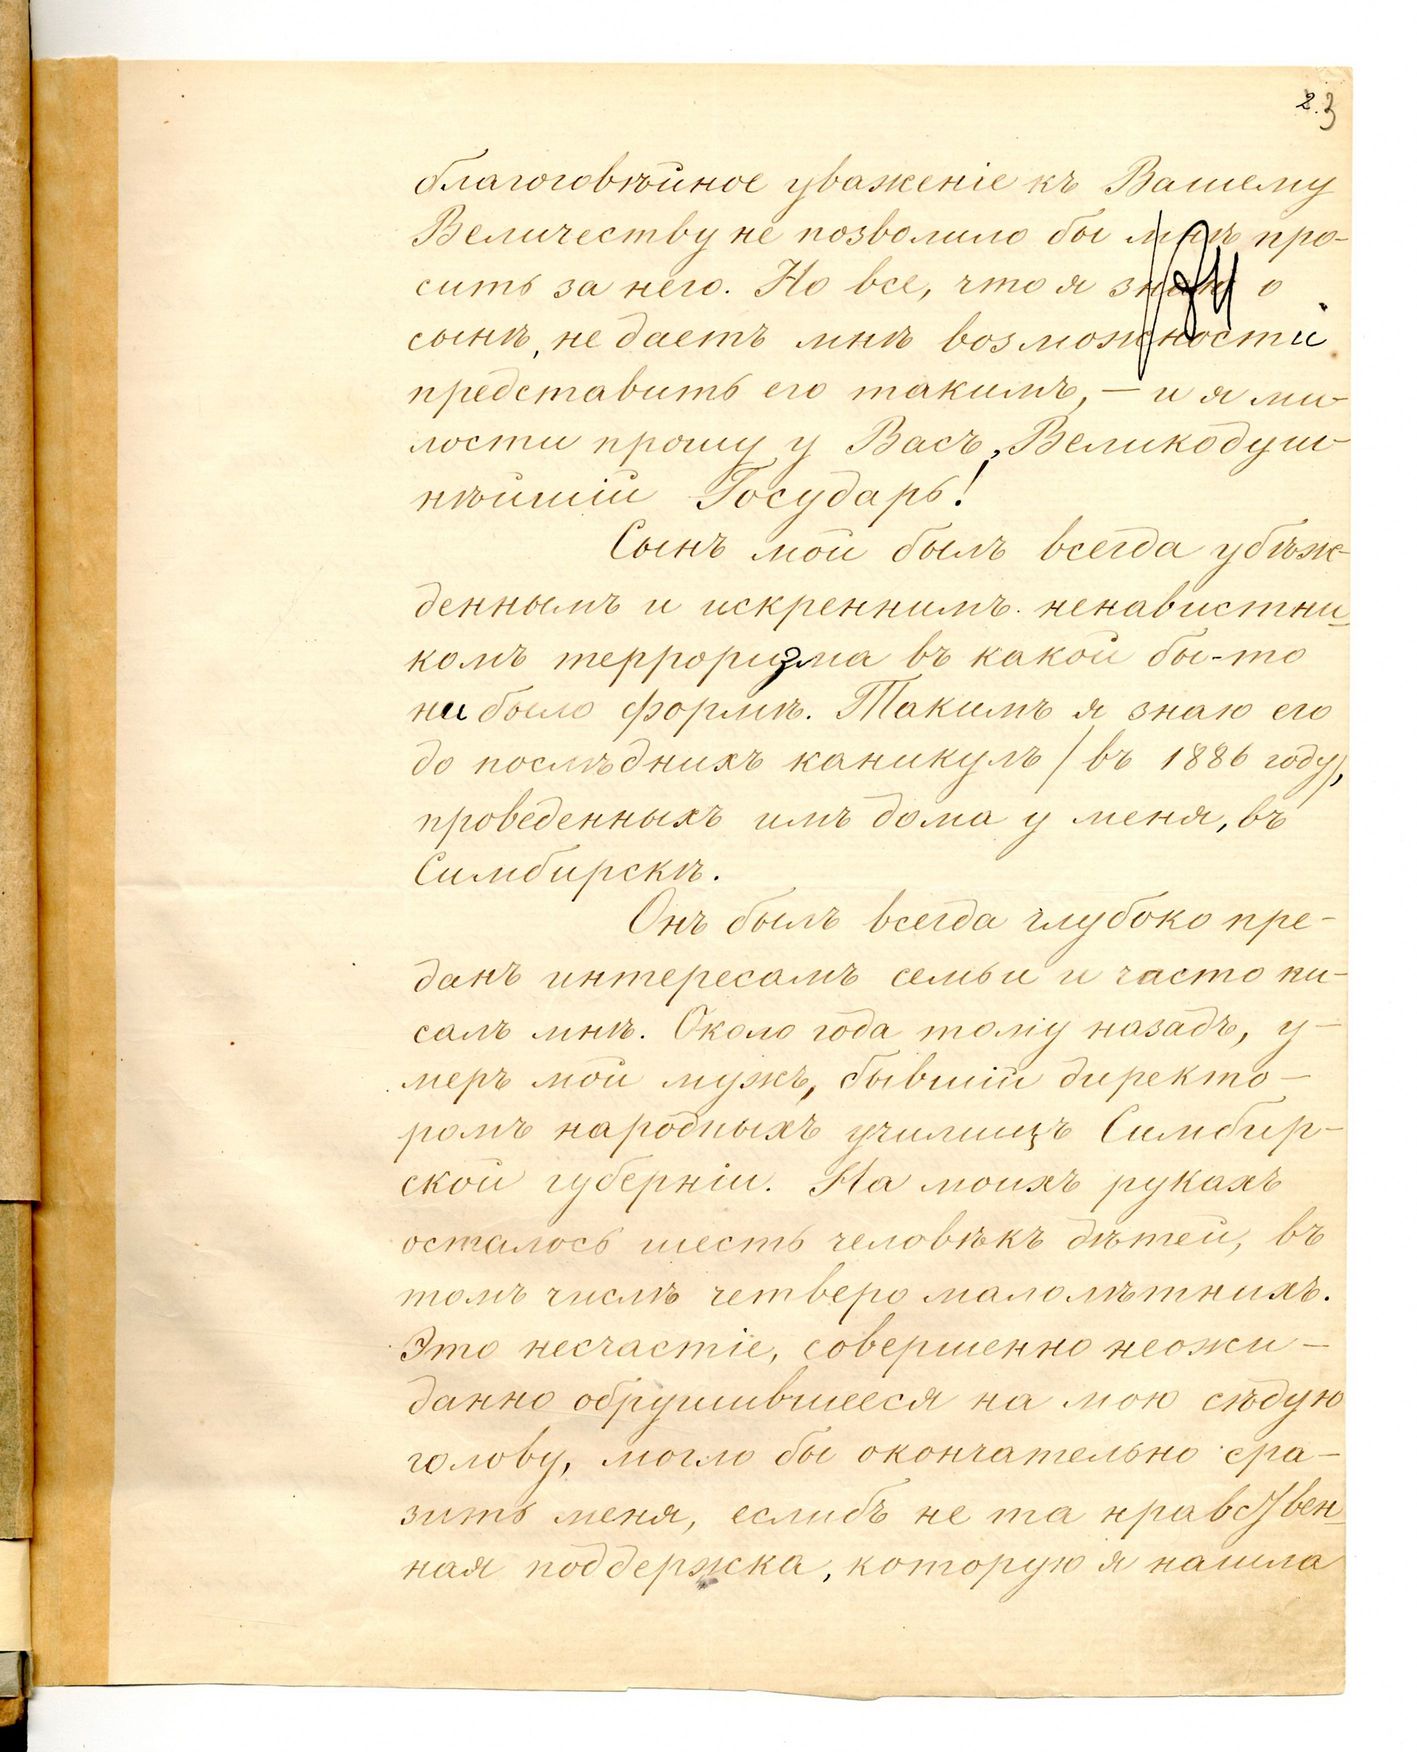 2.3
благоговѣйное уваженіе къ Вашему
Величеству не позволило бы мнѣ про-
сить за него. Но все, что я знаю о
сынѣ, не даетъ мнѣ возможности
представить его такимъ, — и я ми-
лости прошу у Васъ, Великодуш-
нѣйшій Государь!
Сынъ мой былъ всегда убѣж-
деннымъ и искреннимъ ненавистни-
комъ терроризма въ какой бы-то
ни было формѣ. Такимъ я знаю его
до послѣднихъ каникулъ /въ 1886 году/,
проведенныхъ имъ дома у меня, въ
Симбирскѣ.
Онъ былъ всегда глубоко пре-
данъ интересамъ семьи и часто пи-
салъ мнѣ. Около года тому назадъ, у-
меръ мой мужъ, бывшій директо-
ромъ народныхъ училищъ Симбир-
ской губерніи. На моихъ рукахъ
осталось шесть человѣкъ дѣтей, въ
томъ числѣ четверо малолѣтнихъ.
Это несчастіе, совершенно неожи-
данно обрушившееся на мою сѣдую
голову, могло бы окончательно сра-
зить меня, еслибъ не та нравствен-
ная поддержка, которую я нашла